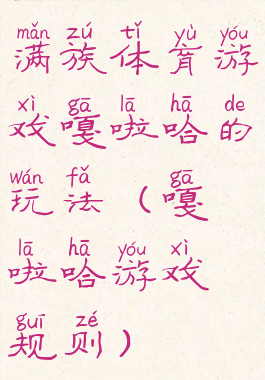 mǎn zú tǐ yù yóu
满族体育游
xì gā lā hā de
戏嘎啦哈的
wán fǎ gā
玩法（嘎
lā hā yóu xì
啦哈游戏
guī zé
规则）